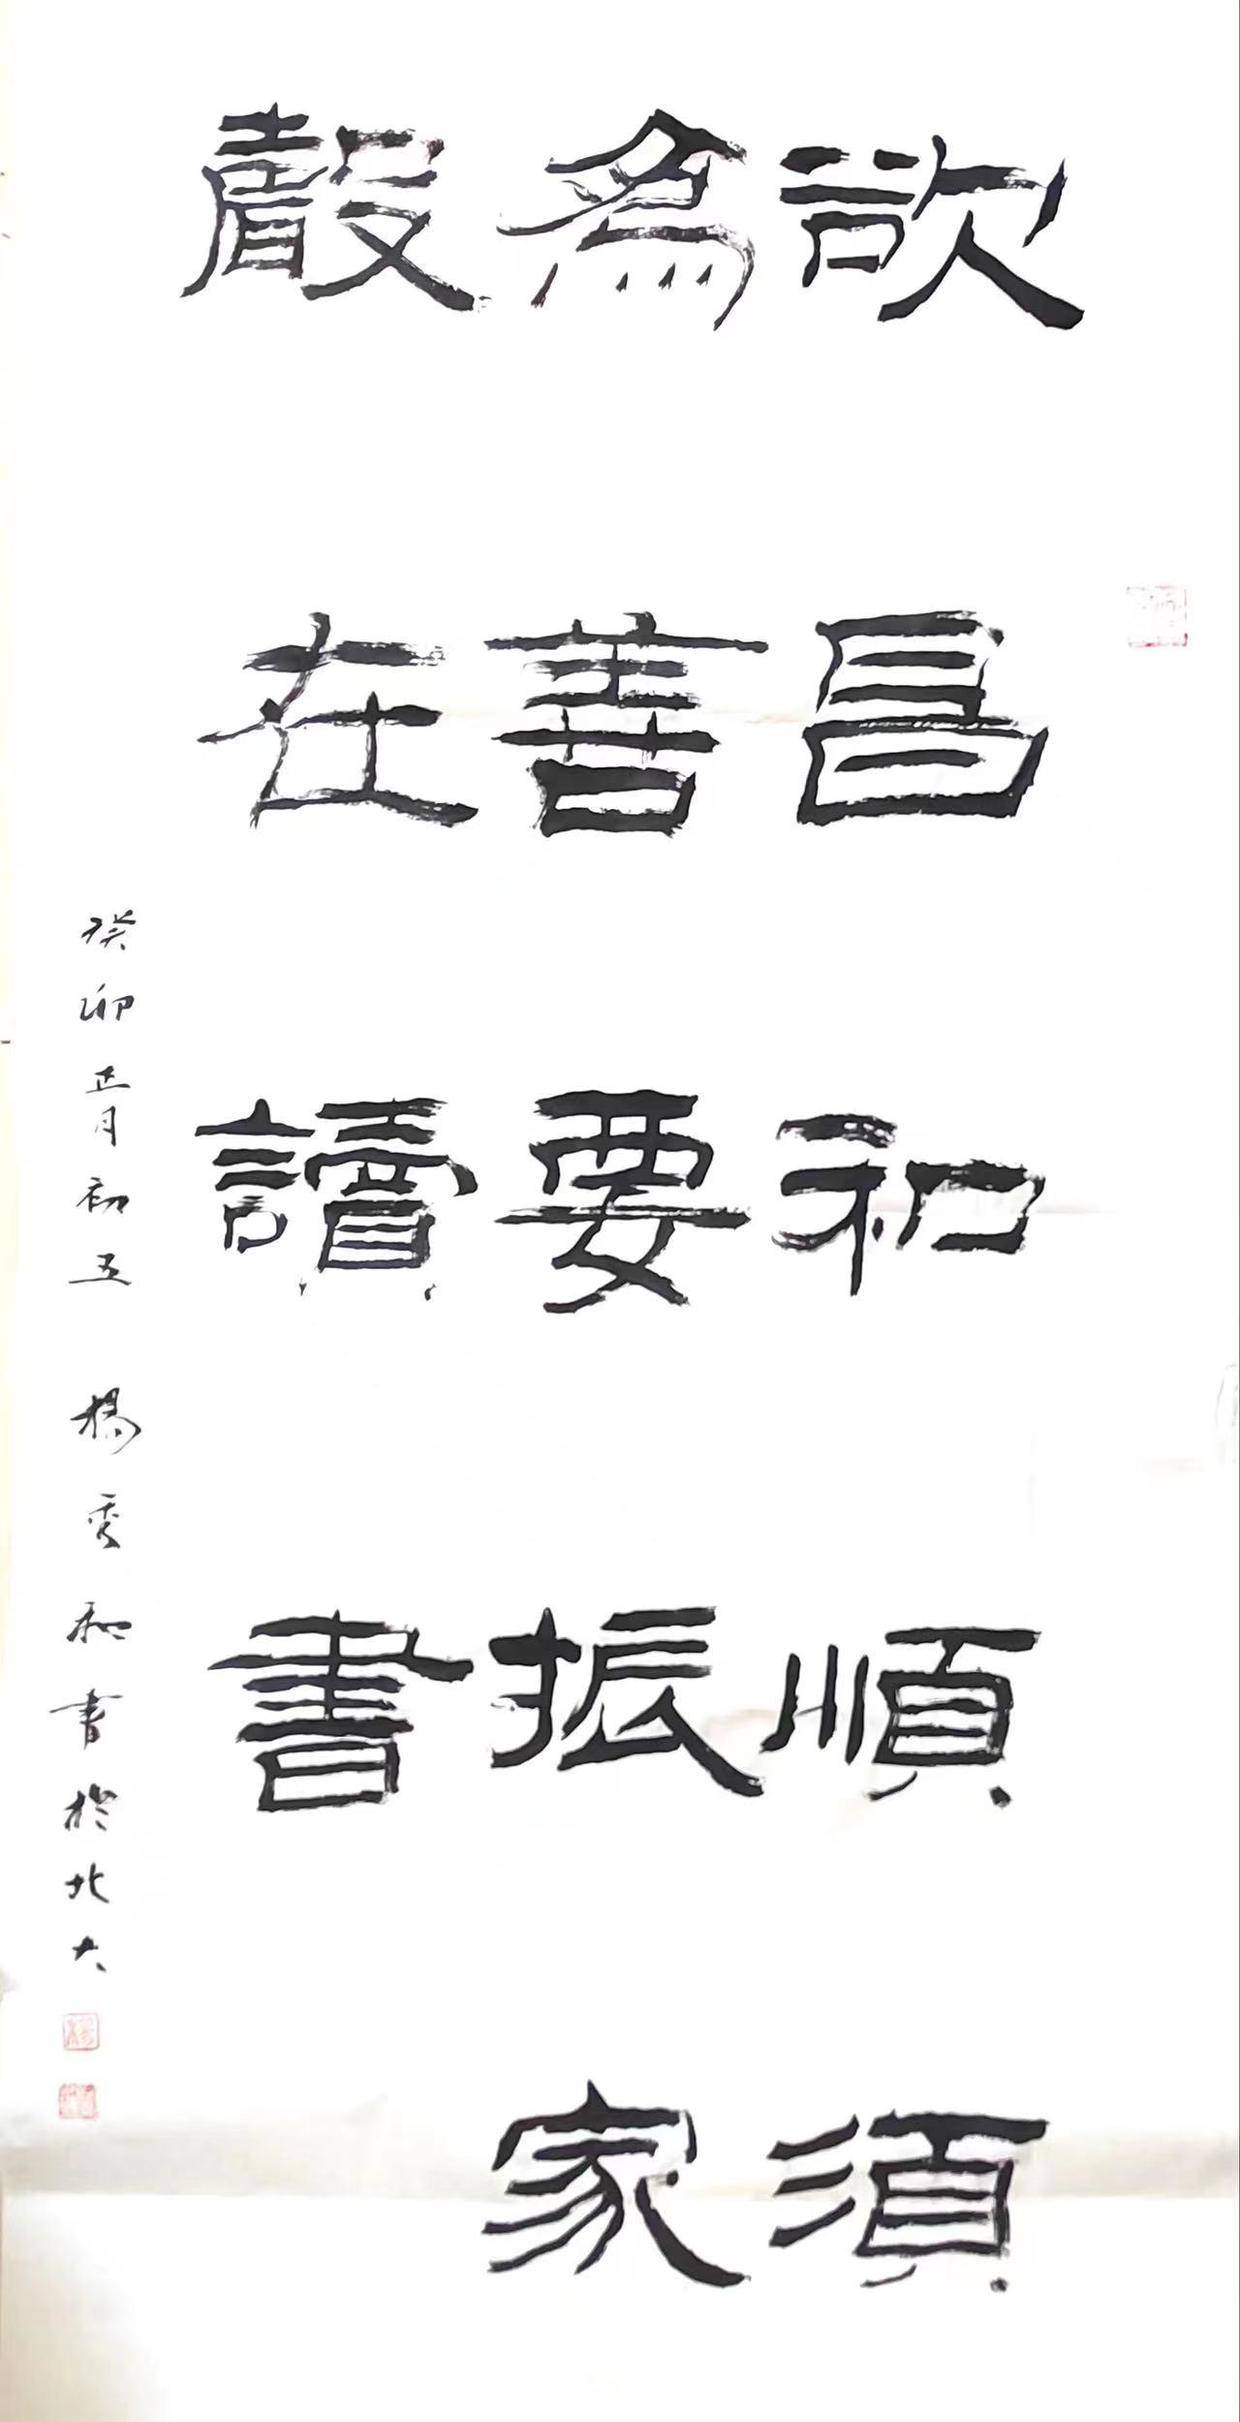 欲昌和順須
為善要振家
聲在讀書
癸卯正月初五 楊秀和書於北大